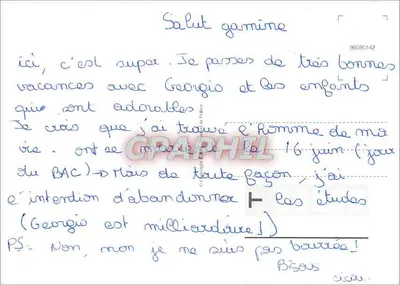 Salut gamine
96090142
ici, c'est super. Je passes de très bonnes
vacances avec Georgio et les enfants
qui sont adorables.
Je crois que j'ai trouvé l'Homme de ma
vie. on se marie le 16 juin (jour
GRAPHIL
du BAC) → Mais de toute façon, j'ai
l'intention d'abandonner les études
(Georgio est milliardaire!)
PS: Non, non je ne suis pas bourrée!
Bisous